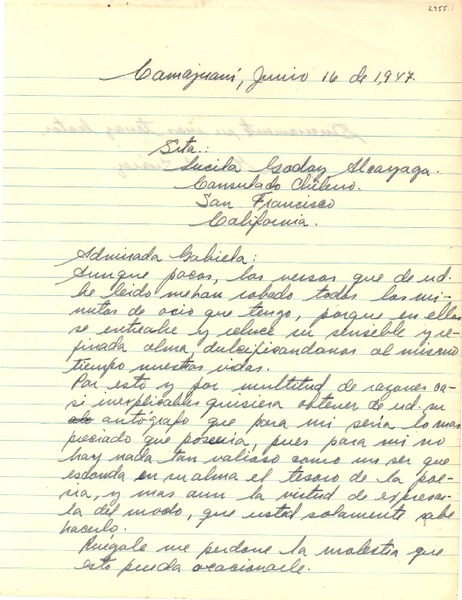 2955
Camajuaní, Junio 16 de 1,947.
Srta.:
Lucila Godoy Alcayaga.
Consulado Chileno.
San Francisco
California.
Admirada Gabiela:
Aunque pocos, los versos que de ud.
he leido me han robado todos los mi-
nutos de ocio que tengo, porque en ellos
se entreabre y reluce su sensible y re-
finada alma, dulcificandonos al mismo
tiempo nuestras vidas.
Por esto y por multitud de razones ca-
si inexplicables quisiera obtener de ud. su
autógrafo que para mi sería lo mas
preciado que poseería, pues para mi no
hay nada tan valioso como un ser que
esconda en su alma el tesoro de la poe-
sia, y mas aun la virtud de expresar-
la del modo, que usted solamente sabe
hacerlo.
Ruégole me perdone la molestia que
esto pueda ocacionarle.